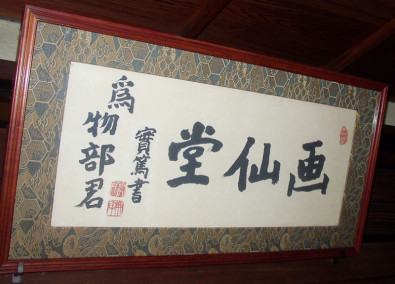 画仙堂
實篤書
爲物部君